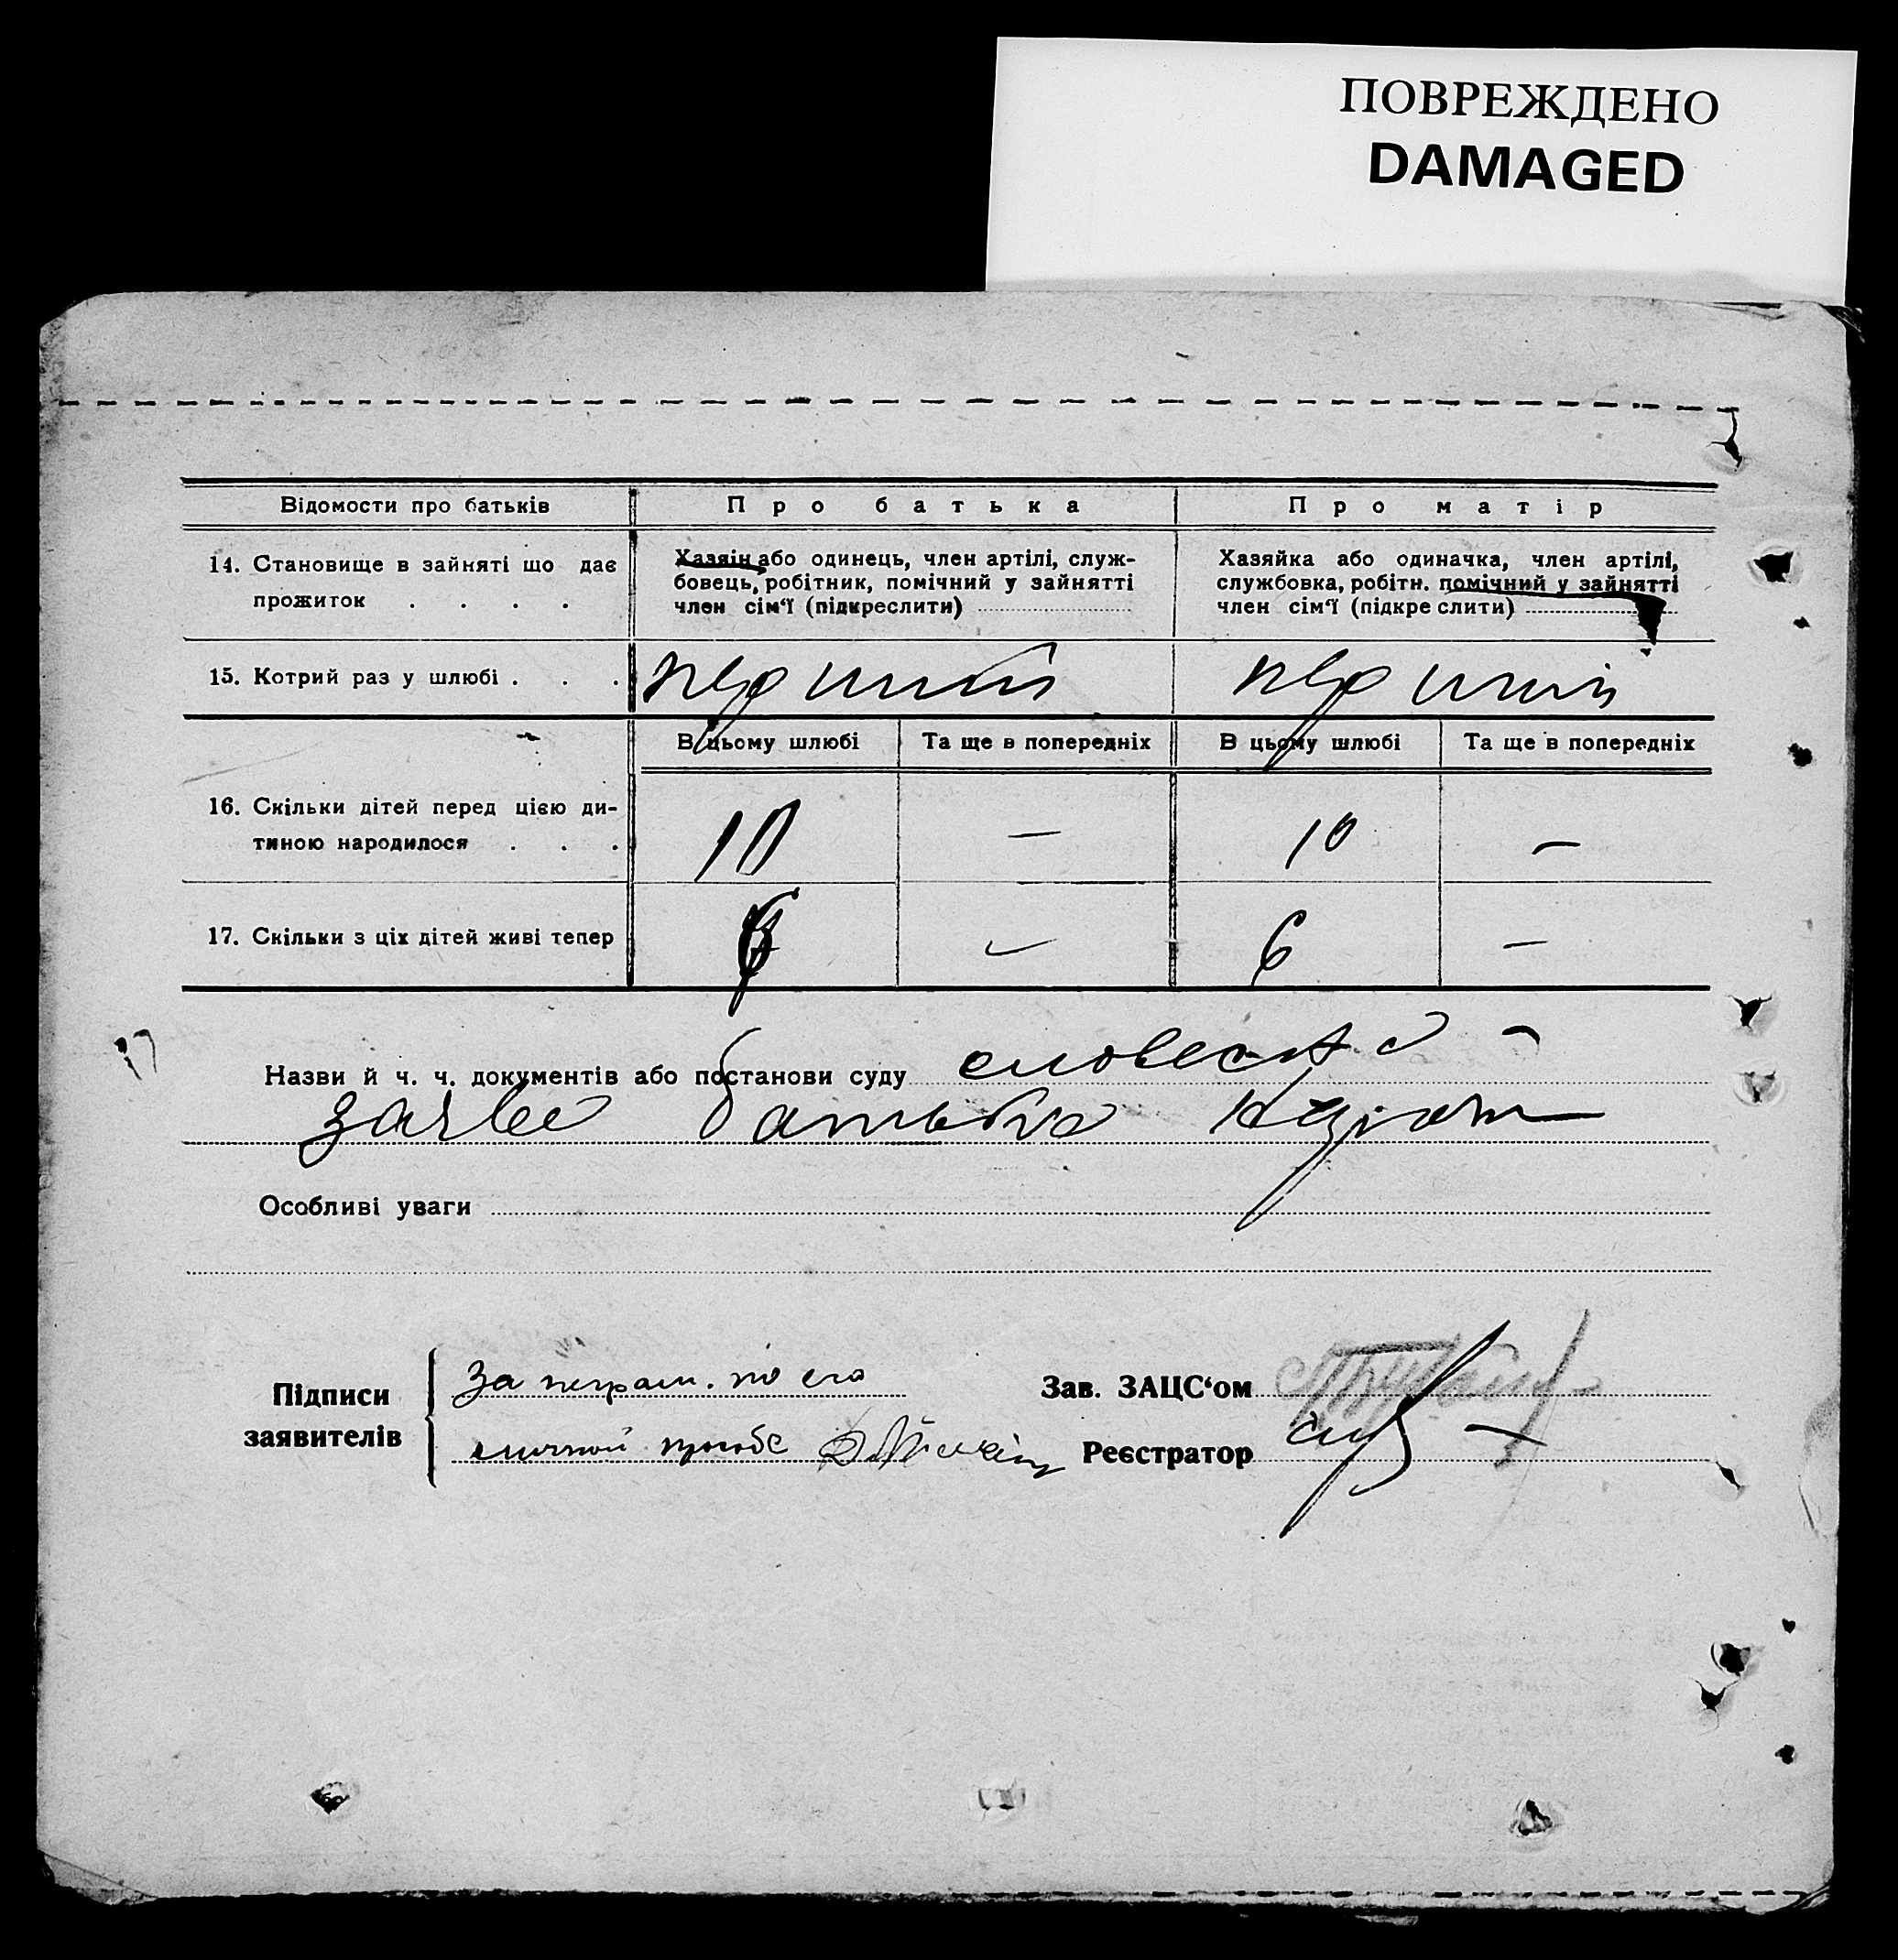 ПОВРЕЖДЕНО
DAMAGED
Відомости про батьків
Про батька
Про матір
14. Становище в зайняті що дає
прожиток . . . .
Хазяін або одинець, член артілі, служ-
бовець, робітник, помічний у зайнятті
член сім'ї (підкреслити)
Хазяйка або одиначка, член артілі,
службовка, робітн. помічний у зайнятті
член сім'ї (підкреслити)
15. Котрий раз у шлюбі . . .
перший
перший
В цьому шлюбі
Та ще в попередніх
В цьому шлюбі
Та ще в попередніх
16. Скільки дітей перед цією ди-
тиною народилося . . .
10
—
10
—
17. Скільки з ціх дітей живі тепер
6
—
6
—
Назви й ч. ч. документів або постанови суду
батька
Особливі уваги
Підписи
заявителів
За неграм. по его
личной прозбе
Зав. ЗАЦС'ом
Реєстратор